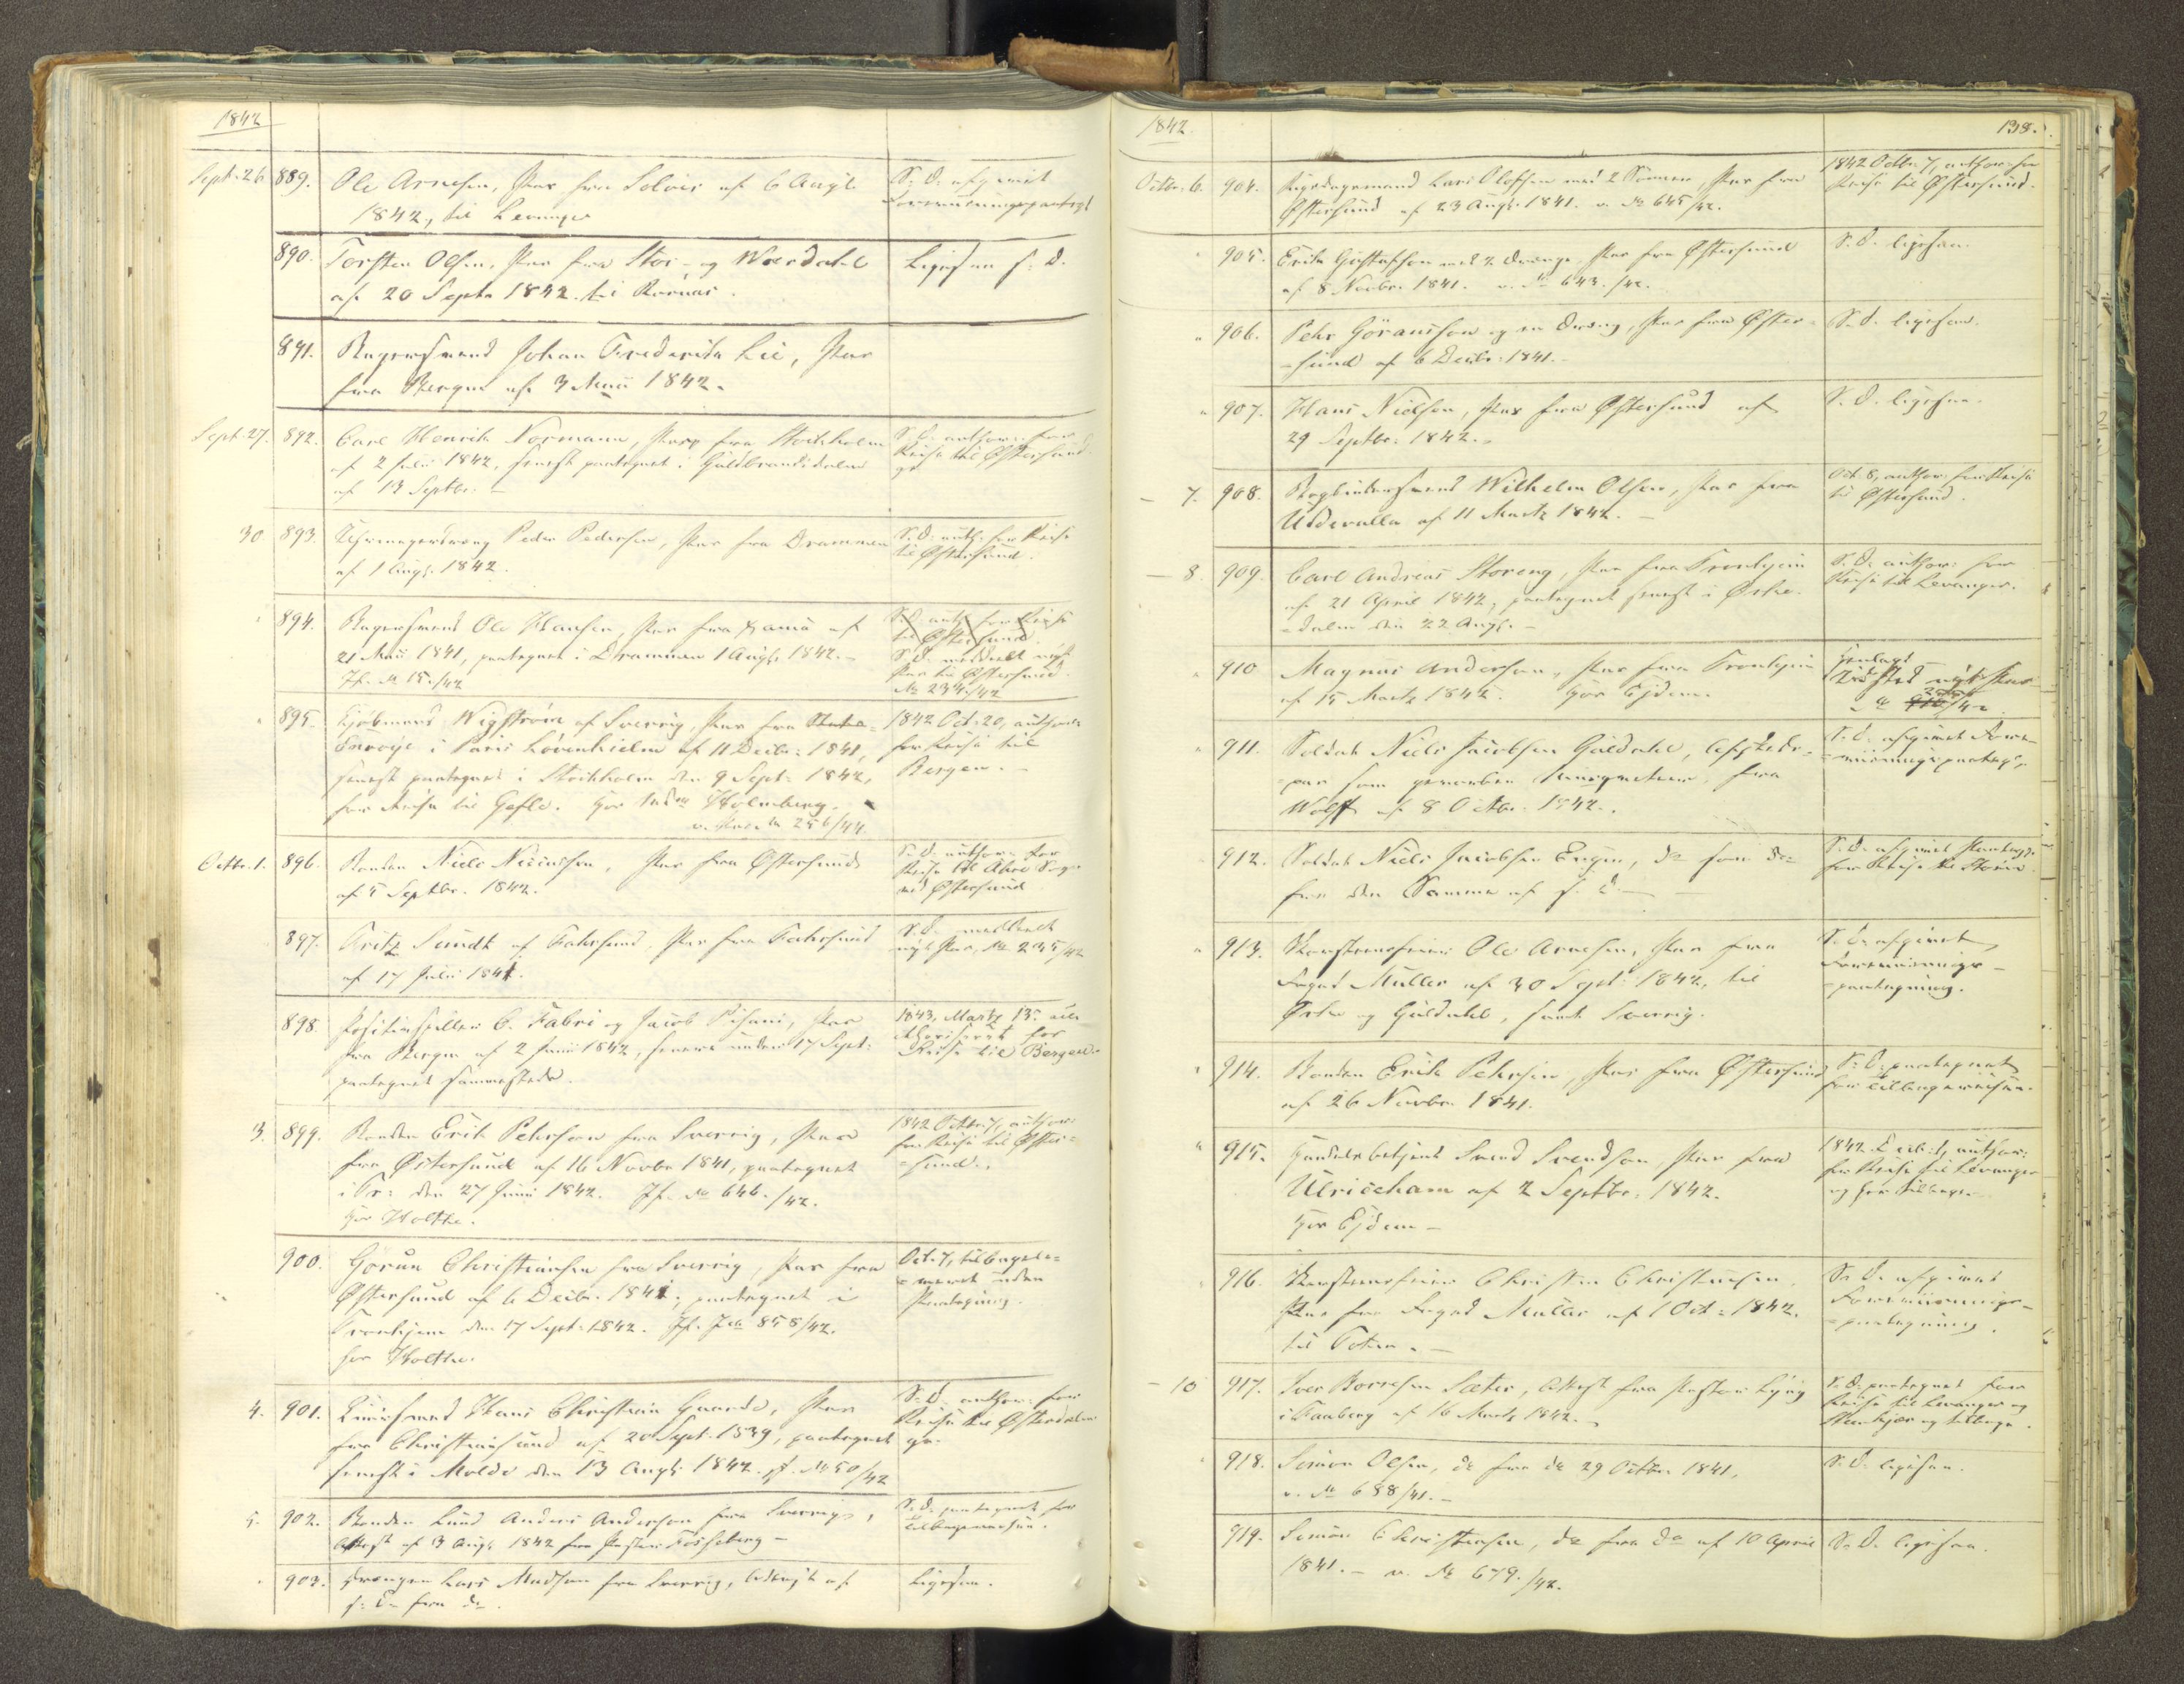 1842
Sept. 26 889. Ole Arnesen, Pas fra Soløer af 6 Augs.
1842, til Levanger
S. D. afgivet
Foreviisningspaategn
890. Torsten Olsen, Pas fra Stør- og Værdahl
af 20 Septr 1842 til
Ligesaa s. D.
891. Bagersvend Johan Frederik Lie, Pas
fra Bergen af 3 Maii 1842.
Sept. 27. 892. Carl Henrik Normann, Pas fra Stockholm
af 2 Julii 1842, senest paategnet i Guldbrandsdalen
af 13 Septbr.
S. D. author: for
Reise til Østersund
30 893. Uhrmagerdreng Peder Pedersen, Pas fra Drammen
af 1 Augs. 1842.
S. D. auth. for Reise
til Østersund.
894. Bagersvend Ole Hansen, Pas fra
21 Maii 1841, paategnet i Drammen 1 Augs. 1842.
Jf. No 15./42
S. D. auth for Reise
til Østersund.
S. D. meddelt nyt
Pas til Østersund.
No 234./42
895. Kjøbmand Wigstrøm af Sverrig, Pas fra
Envoyé i Paris Løvenhielm af 11 Decbr: 1841,
senest paategnet i Stockholm den 9 Sept. 1842,
for Reise til Gefle. hos Holmberg.
No 256/44
1842 Oct. 20, author
for Reise til
Bergen.
Octbr. 1. 896. Bonden Niels Nilsson, Pas fra Østersund
af 5 Septbr. 1842.
S. D. author. for
Reise til Åhre Sogn
ved Østersund
897. Fritz Sundt af Fahrsund, Pas fra Fahrsund
af 17 Julii 1841.
S. D. meddeelt
nyt Pas, No 235/42
898. Positivspiller C. Fabri og Jacob Pisani, Pas
fra Bergen af 2 Junii 1842, senere under 17 Sept:
paategnet sammesteds.
1843, Martz 13. au-
thoriseret for
Reise til Bergen.
3. 899. Bonden Erik Pehrson fra Sverrig, Pas
fra Østersund af 16 Novbr 1841, paategnet
i Tr: den 27 Junii 1842. Jf. No 646./42.
hos Holthe.
1842 Octbr 7, author:
for Reise til Øster-
sund.
900. Göran Christiansen fra Sverrig, Pas fra
Østersund af 6 Decbr. 1841, paategnet i
Tronhjem den 17 Sept. 1842. Jf. No 858/42.
hos Holthe.
Oct. 7, tilbagele-
veret uden
Paategning.
4. 901. Hans Christian Gaarde, Pas
fra Christiansund af 20 Sept. 1839, paategnet
senest i Molde den 13 Augs 1842. jf. No 50/42
S. D. author: for
Reise til Østerdalen
5. 902. Bonden Lund Anders Andersson fra Sverrig,
Attest af 3 Augs 1842 fra Pastor Forssberg
S. D. paategnet for
Tilbagereisen.
903. Drengen Lars Madsen fra Sverrig, Attest af
s. D. fra do.
Ligesaa.
1842. 138.
Octbr. 6. 904. Rigsdagsmand Lars Oloffsen med 2 Sønner, Pas fra
Østersund af 23 Augs. 1841. v. No 645/42.
1842 Octbr. 7, author: for
Reise til Østersund.
905. Erik Gustafson med 2 Drenge, Pas fra Østersund
af 8 Novbr. 1841. v. No 643./42.
S. D. ligesaa.
906. Pehr Göransson og en Dreng, Pas fra Øster-
sund af 6 Decbr: 1841.
S. D. ligesaa.
907. Hans Nielsen, Pas fra Østersund af
29 Septbr: 1842.
S. D. ligesaa.
7. 908. Bogbindersvend Wilhelm Olsen, Pas fra
Uddevalla af 11 Martz 1842.
Oct. 8, author: for Reise
til Østersund.
8. 909. Carl Andreas Storeng, Pas fra Tronhjem
af 21 April 1842, paategnet senest i Ørke-
dalen den 22 Augs.
S. D. author: for
Reise til Levanger.
910 Magnus Anderson, Pas fra Tronhjem
af 15 Martz 1842. hos Ejdem.
Henlagt
Udstedt nyt Pas
No /42.
911. Soldat Niels Jacobsen Guldahl, Afskeds-
pas som geworben Musqueteer, fra
Wolff af 8 Octbr. 1842.
S. D. afgivet Fore-
viisningspaategn.
912. Soldat Niels Jacobsen Engen, do som do
fra den Samme af s. D.
S. D. afgivet Paategn.
for Reise til
913. Skorsteensfeier Ole Arnesen, Pas fra
Foged Müller af 30 Sept: 1842, til
Ørke og Guldahl, samt Sverrig.
S. D. afgivet
Foreviisnings-
paategning.
914. Bonden Erik Pehrson, Pas fra Østersund
af 26 Novbr. 1841.
S. D. paategnet
for Tilbagereisen.
915. Handelsbetjent Svend Svendson, Pas fra
Ulriceham af 2 Septbr. 1842.
hos Ejdem
1842. Decbr. 1, author:
for Reise til Levanger
og her tilbage.
916. Skorsteensfeier Christen Christensen,
Pas fra Foged Müller af 1 Oct: 1842.
til Toten.
S. D. afgivet
Foreviisnings-
paategning.
10 917. Iver Borresen Sæter, Attest fra Pastor Lyng
i Faaberg af 16 Martz 1842.
S. D. paategnet for
Reise til Levanger og
Steenkjær og tilbage.
918. Simon Olsen, do fra do 29 Octbr. 1841.
v. No 688/41.
S. D. ligesaa.
919. Simon Christensen, do fra do af 10 April
1841. v. No 679./42.
S. D. ligesaa.